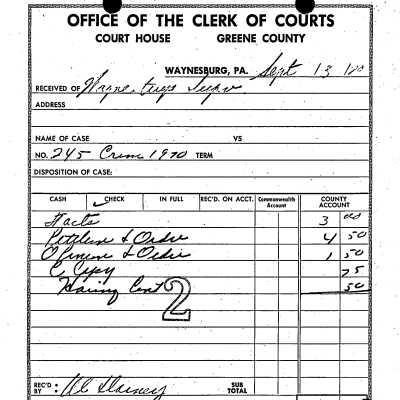 OFFICE OF THE CLERK OF COURTS
COURT HOUSE GREENE COUNTY
WAYNESBURG, PA. Sept 13
RECEIVED OF Wayne Twp
ADDRESS
NAME OF CASE VS
NO. 245 Crim 1970 TERM
DISPOSITION OF CASE:
CASH CHECK IN FULL REC'D. ON ACCT. Commonwealth Account COUNTY ACCOUNT
3 00
Petition & Order 4 50
Opinion & Order 1 50
C. Copy 75
50
2
REC'D BY: SUB TOTAL